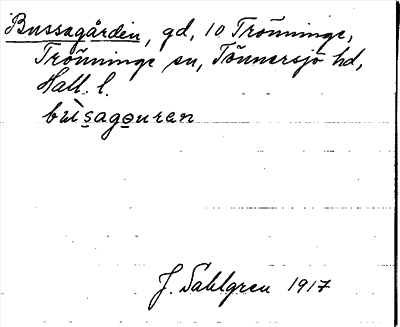 Bussagården, gd, 10 Trönninge,
Trönninge sn, Tönnersjö hd,
Hall. l.
bùsagəuran
J. Sahlgren 1917